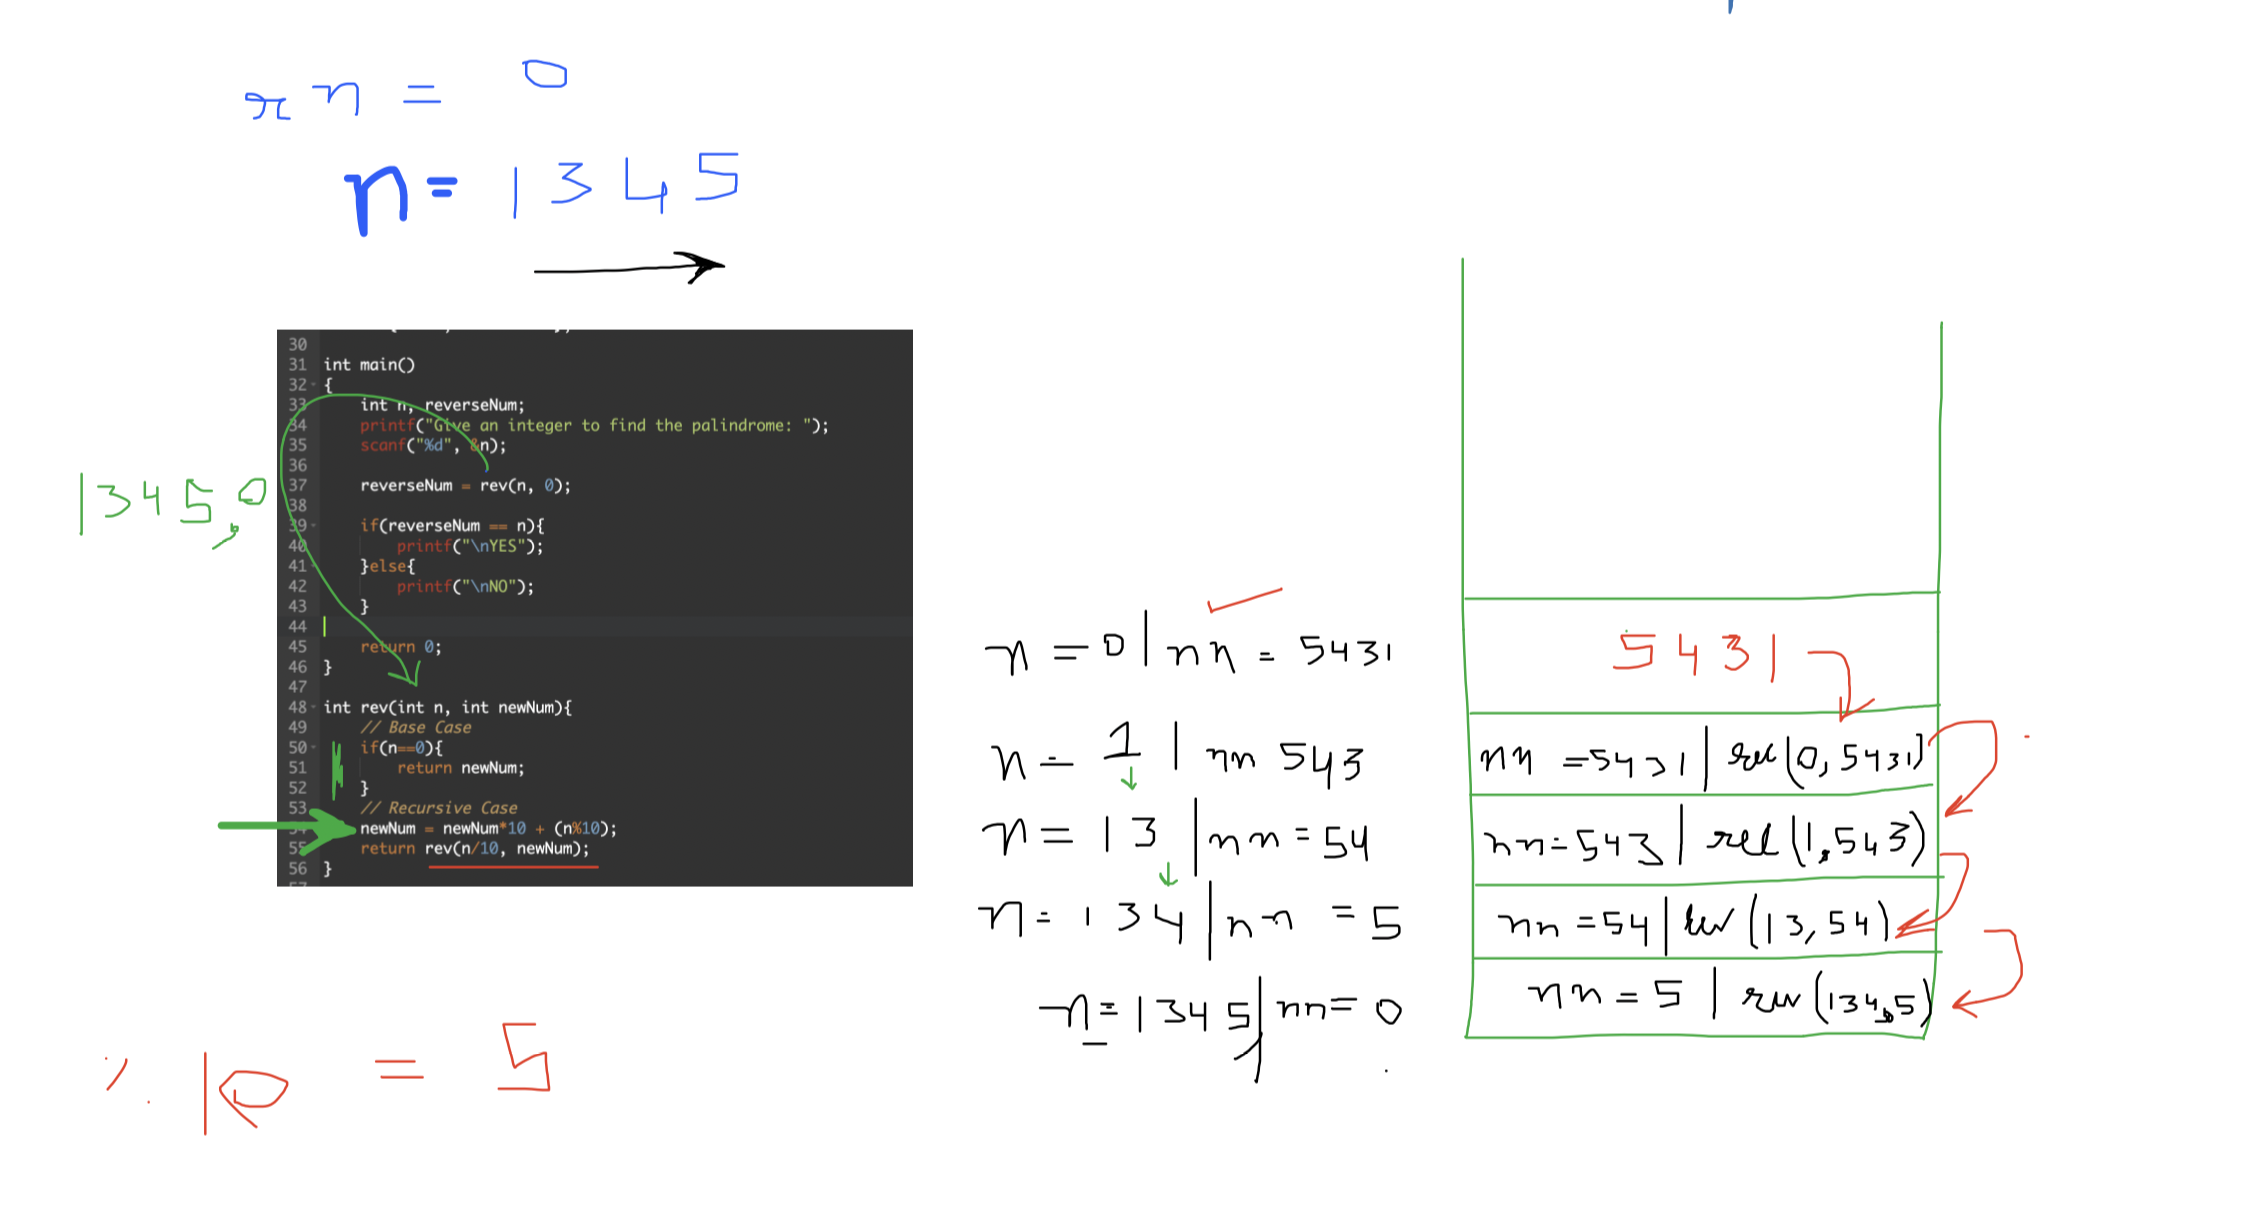 rn = 0
n = 1345
30
31 int main()
32 {
33 int n, reverseNum;
34 printf("Give an integer to find the palindrome: ");
35 scanf("%d", &n);
36
37 reverseNum = rev(n, 0);
38
39 if(reverseNum == n){
40 printf("\nYES");
41 }else{
42 printf("\nNO");
43 }
44
45 return 0;
46 }
47
48 int rev(int n, int newNum){
49 // Base Case
50 if(n==0){
51 return newNum;
52 }
53 // Recursive Case
54 newNum = newNum*10 + (n%10);
55 return rev(n/10, newNum);
56 }
57
1345,0
% 10 = 5
n = 0 | nn = 5431
n = 1 | nn 543
n = 13 | nn = 54
n = 134 | nn = 5
n = 1345 | nn = 0
5431
nn = 5431 | rec(0, 5431)
nn = 543 | rel(1,543)
nn = 54 | rev(13,54)
nn = 5 | rev(134,5)